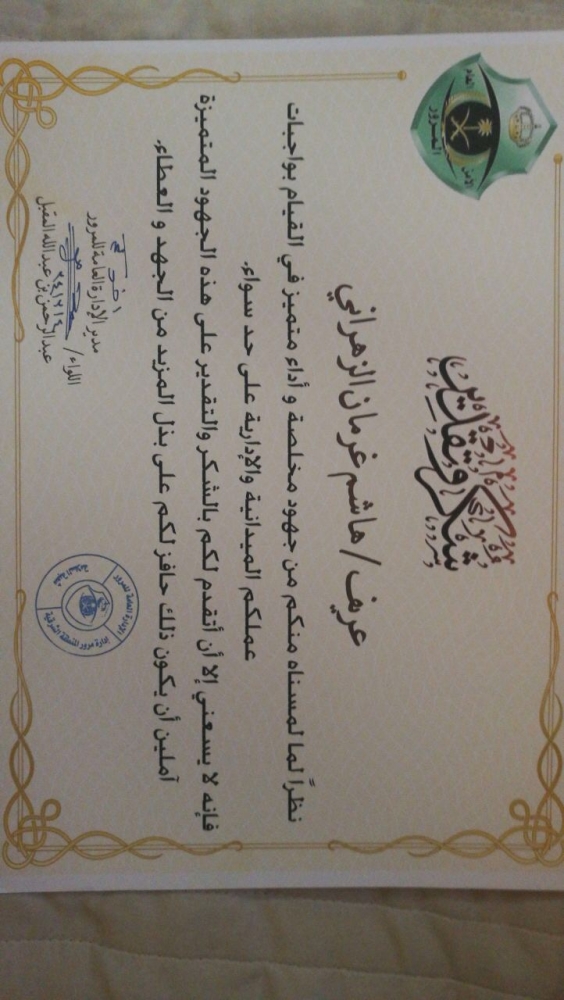 الأمن العام
المرور
شكر وتقدير
عريف / هاشم غرمان الزهراني
نظراً لما لمسناه منكم من جهود مخلصة و أداء متميز في القيام بواجبات
عملكم الميدانية والإدارية على حد سواء.
فإنه لا يسعني إلا أن أتقدم لكم بالشكر والتقدير على هذه الجهود المتميزة
آملين أن يكون ذلك حافز لكم على بذل المزيد من الجهد و العطاء.
مدير الإدارة العامة للمرور
اللواء /
عبدالرحمن بن عبدالله المقبل
الإدارة العامة للمرور
إدارة مرور المنطقة الشرقية